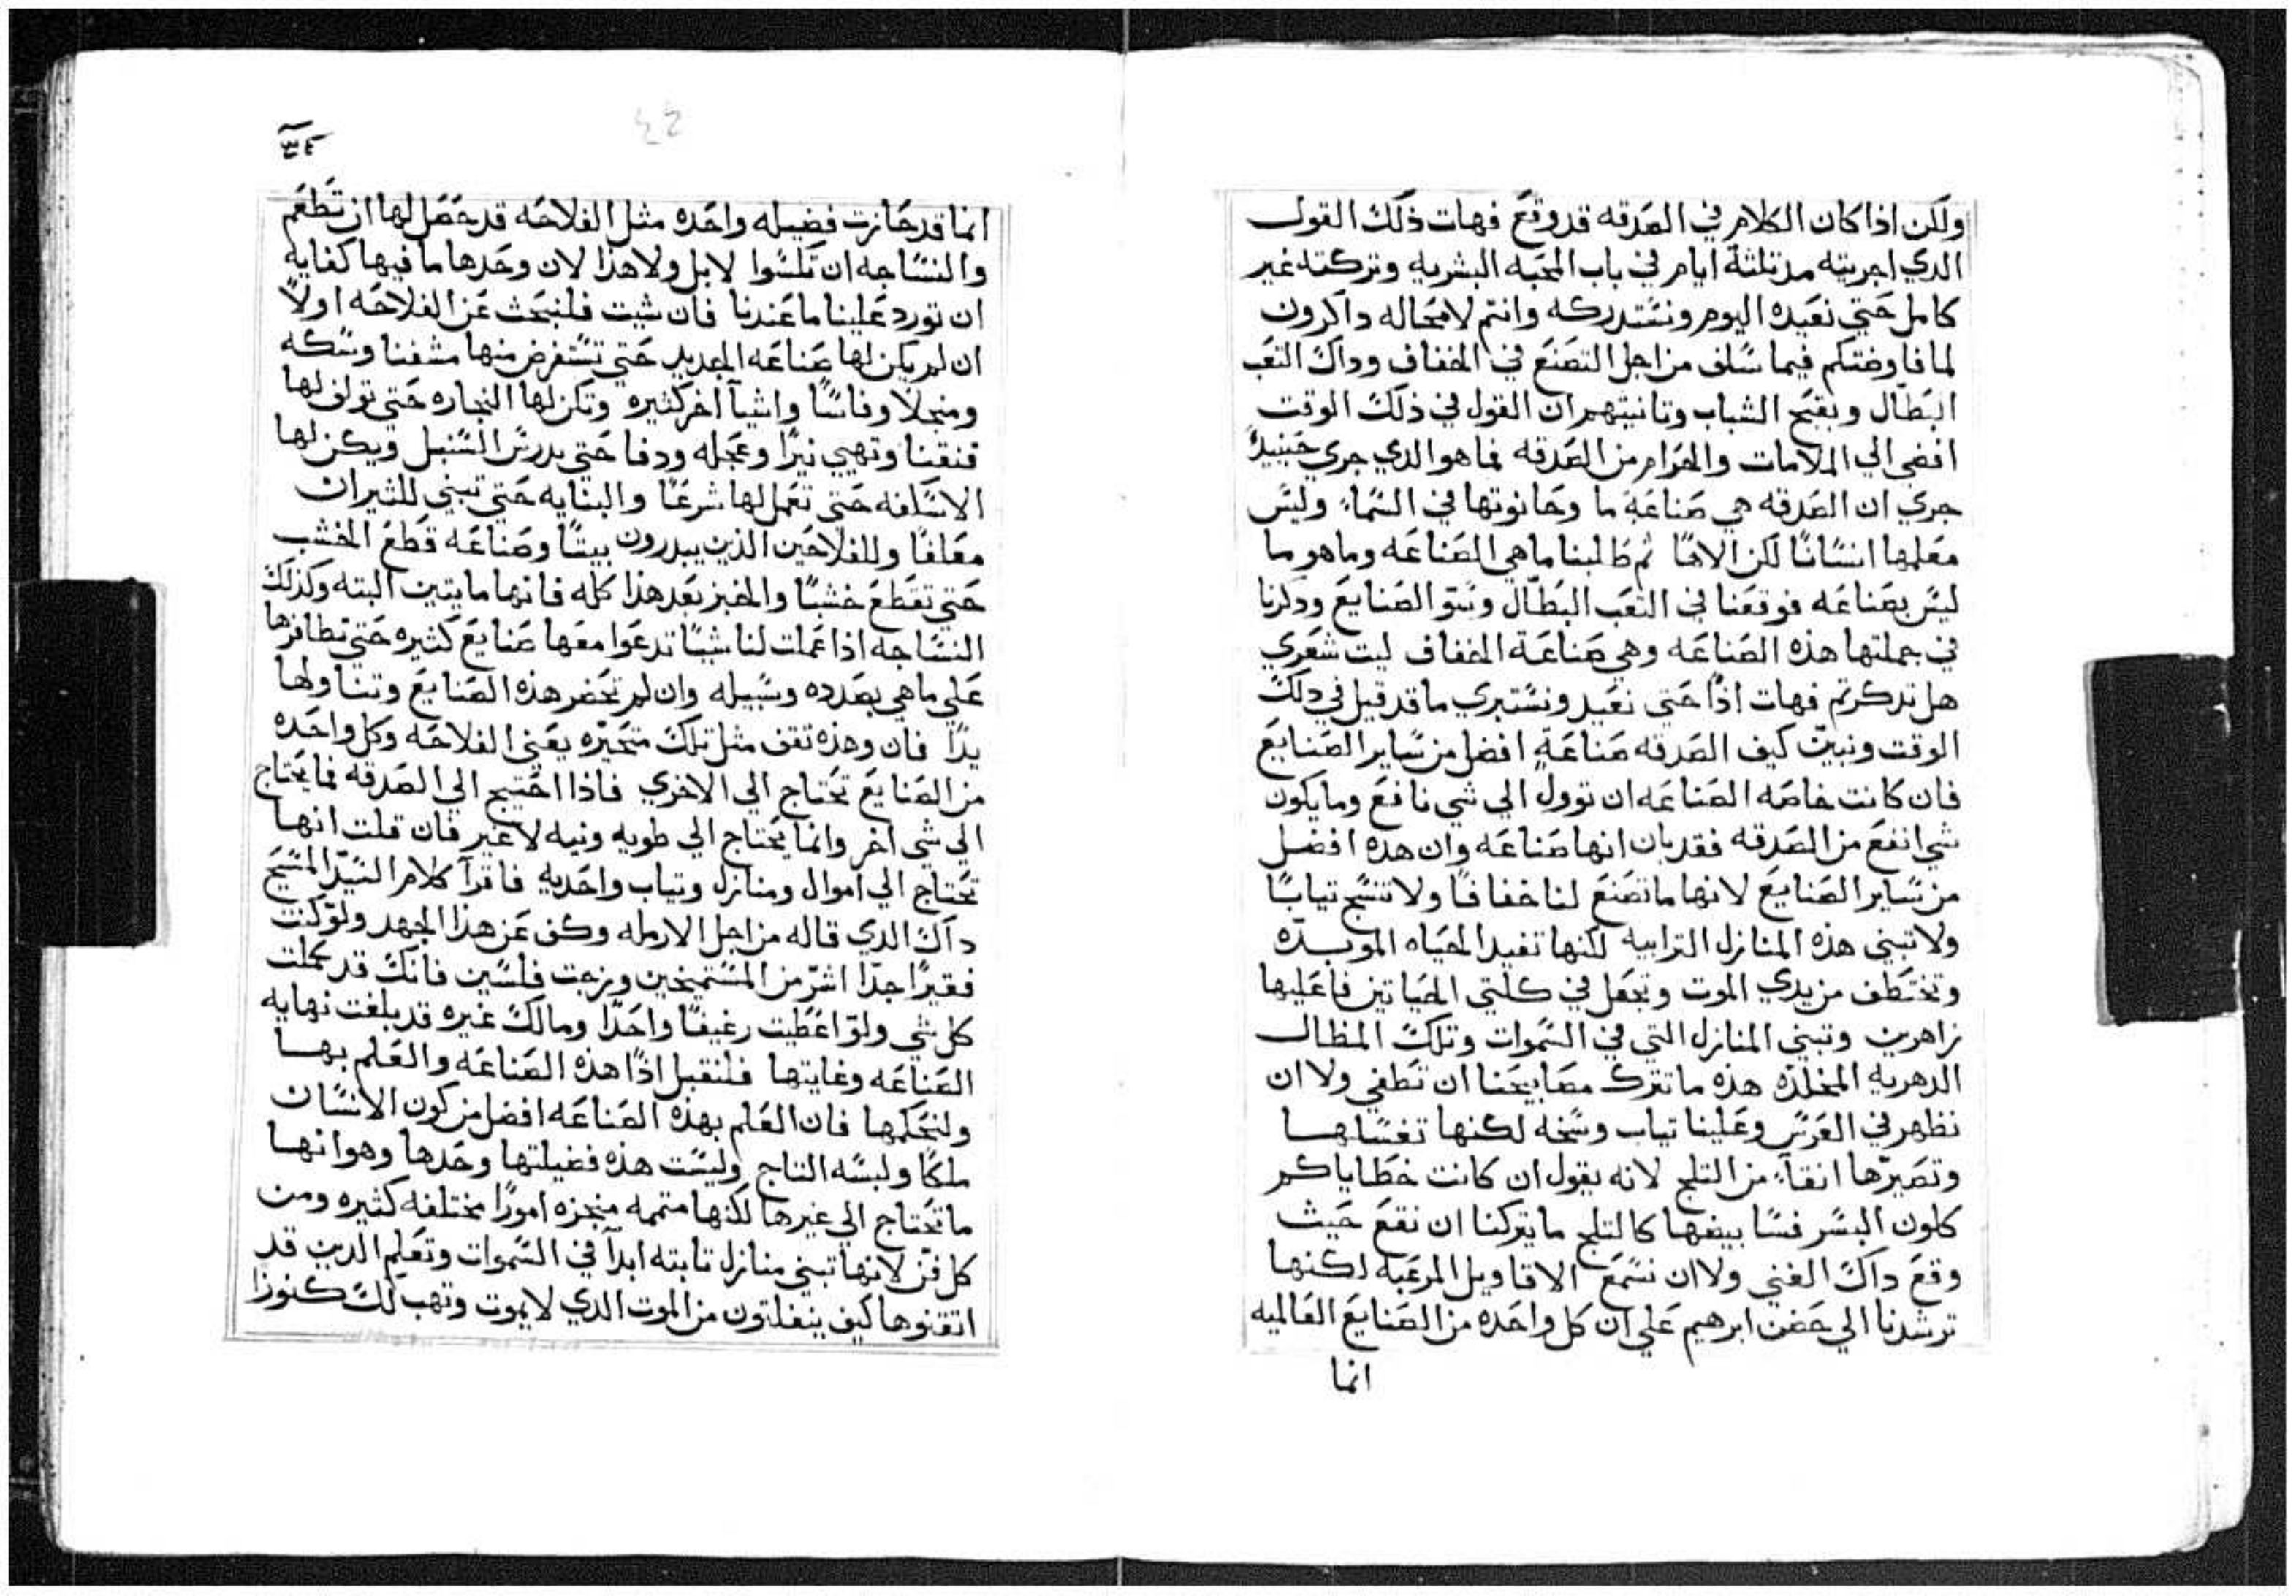 ولكن اذا كان الكلام في الصدقه قد وقع فهات ذلك القول
الدي اجريته مد تلتة ايام في باب المحبه البشريه وتركته غير
كامل حتي نعيده اليوم ونستدركه وانتم لا محاله داكرون
لما فاوضتكم فيما سلف من اجل التصنع في الخفاف وداك التعب
البطال وبقبح الشباب وتانيتهم ان القول في ذلك الوقت
افضى الي الملامات والغرام من الصدقه فما هو الدي جري حينيدً
جري ان الصدقه هي صناعة ما وحانوتها في السماء وليس
معلمها انسانا لكن الاها ثم طلبنا ما هي الصناعه وما هو ما
ليس بصناعه فوقعنا في التعب البطال وبتو الصنايع ودكرنا
في جملتها هذه الصناعه وهي صناعة الخفاف ليت شعري
هل تدكرتم فهات اذًا حتي نعيد ونستبري ما قد قيل في دلك
الوقت ونبين كيف الصدقه صناعةٍ افضل من ساير الصنايع
فان كانت خاصه الصناعه ان توول الي شي نافع وما يكون
شي انفع من الصدقه فقد بان انها صناعه وان هده افضل
من ساير الصنايع لانها ما تصنع لنا خفافًا ولا تنسج تيابًا
ولا تبني هذه المنازل الترابيه لكنها تفيد الحياه الموبده
وتختطف من يدي الموت وتجعل في كلتي الحياتين فاعليها
زاهرين وتبني المنازل التي في السموات وتلك المظال
الدهريه المخلده هذه ما تترك مصابيحنا ان تطفي ولا ان
نظهر في العرس وعلينا تياب وسخه لكنها تغسلها
وتصيرها انقاء من التلج لانه يقول ان كانت خطاياكم
كلون البسر فسابيضها كالتلج ما يتركنا ان نقع حيث
وقع داك الغني ولا ان نسمع الاقاويل المرعبه لكنها
ترشدنا الي حضن ابرهيم علي ان كل واحده من الصنايع العالميه
انما
٤٢
انما قد حازت فضيله واحده مثل الفلاحه قد حصل لها ان تطعم
والنساجه ان تلسوا لا بل ولا هذا لان وحدها ما فيها كفايه
ان تورد علينا ما عندنا فان شيت فلنبحث عن الفلاحه اولاً
ان لم يكن لها صناعه الحديد حتي تستفرض منها مشفنا وسكه
ومنجلا وفاسًا واشيآ اخر كثيره وتكن لها النجاره حتي تولف لها
فنقنا وتهيي نيرًا وعجله ودفا حتي يدرس السنبل ويكن لها
الاسكافه حتى تعمل لها شرعًا والبنايه حتي تبني للثيران
معلفًا وللفلاحين الذين يبدرون بيتًا وصناعه قطع الخشب
حتي تقطع خشبًا والخبز بعد هذا كله فانها ما يتبين البته وكذلك
النساجه اذا عملت لنا شيًا تدعوا معها صنايع كثيره حتي تظافرها
علي ما هي بصدده وسبيله وان لم تحضر هذه الصنايع وتناولها
يدًا فان وهذه تقف مثل تلك متحيره يعني الفلاحه وكل واحده
من الصنايع تحتاج الي الاخري فاذا احتيج الي الصدقه فما يحتاج
الي شي اخر وانما يحتاج الي طويه ونيه لا غير فان قلت انها
تحتاج الي اموال ومنازل وتياب واحديه فاقرآ كلام السيد المسيح
داك الدي قاله من اجل الارمله وكف عن هذا الجهد ولو كنت
فقيرًا جدًا اشر من المستميخين وزجت فلسين فانك قد كملت
كل شي ولو اعطيت رغيفًا واحدًا وما لك غيره قد بلغت نهايه
الصناعه وغايتها فلنقبل اذًا هذه الصناعه والعلم بها
ولنحكمها فان العلم بهذه الصناعه افضل من كون الانسان
ملكًا ولبسه التاج وليست هذه فضيلتها وحدها وهو انها
ما تحتاج الي غيرها لكنها متممه منجزه امورًا مختلفه كثيره ومن
كل فن لانها تبني منازل تابته ابدآ في السموات وتعلم الدين قد
اتقنوها كيف ينفلتون من الموت الدي لا يموت وتهب لك كنوزا